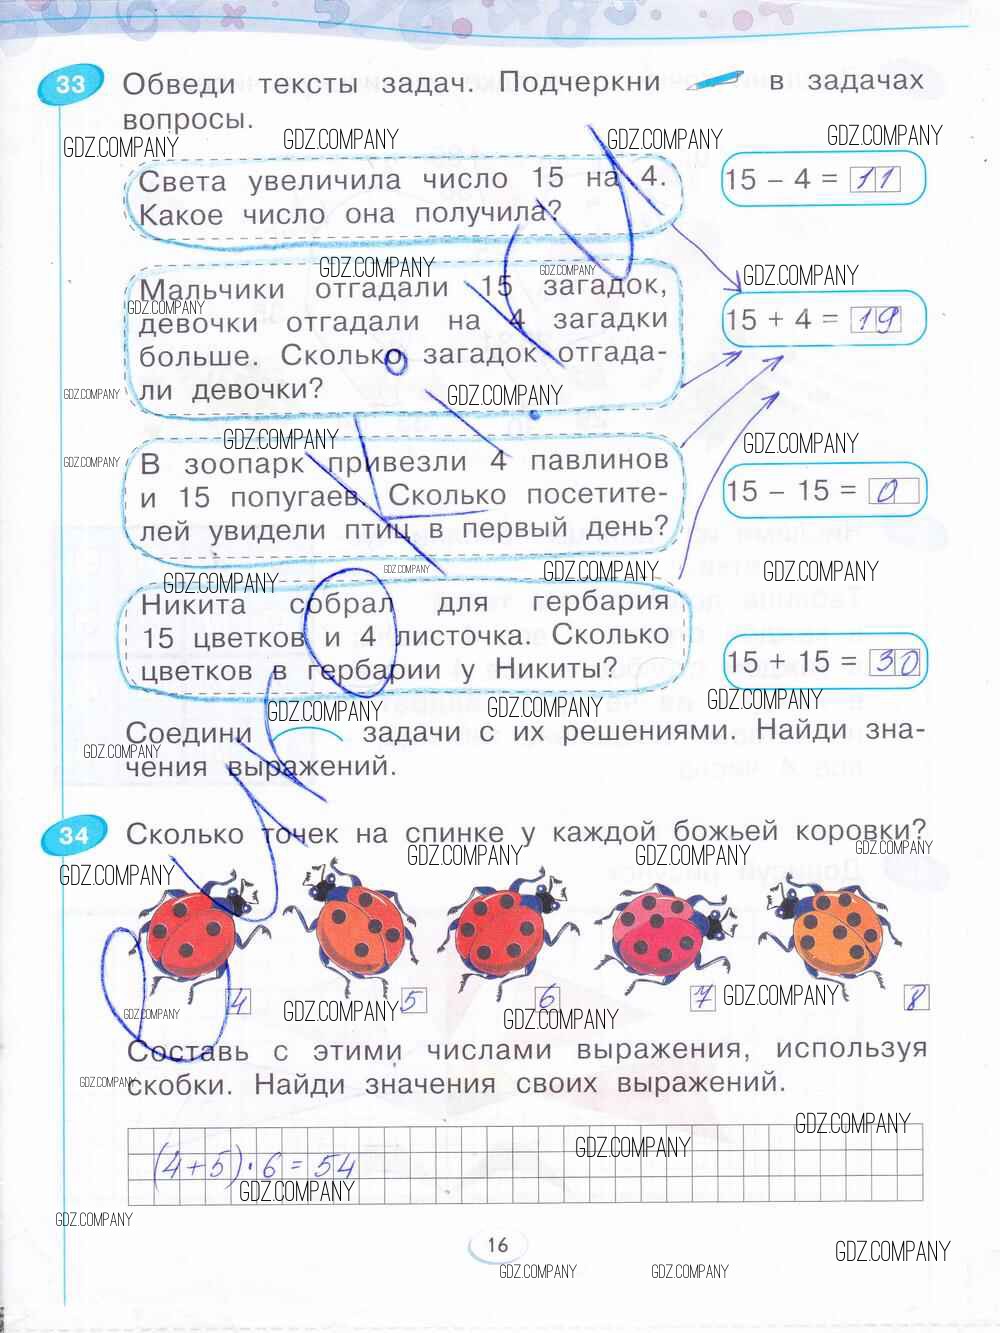 33 Обведи тексты задач. Подчеркни в задачах
вопросы.
GDZ.COMPANY GDZ.COMPANY GDZ.COMPANY GDZ.COMPANY
Света увеличила число 15 на 4.
Какое число она получила?
15 – 4 = 11
GDZ.COMPANY GDZ.COMPANY GDZ.COMPANY
Мальчики отгадали 15 загадок,
GDZ.COMPANY
девочки отгадали на 4 загадки
больше. Сколько загадок отгада-
ли девочки?
15 + 4 = 19
GDZ.COMPANY GDZ.COMPANY
GDZ.COMPANY GDZ.COMPANY
GDZ.COMPANY
В зоопарк привезли 4 павлинов
и 15 попугаев. Сколько посетите-
лей увидели птиц в первый день?
15 – 15 = 0
GDZ.COMPANY GDZ.COMPANY GDZ.COMPANY GDZ.COMPANY
Никита собрал для гербария
15 цветков и 4 листочка. Сколько
цветков в гербарии у Никиты?
15 + 15 = 30
GDZ.COMPANY GDZ.COMPANY GDZ.COMPANY
Соедини задачи с их решениями. Найди зна-
GDZ.COMPANY
чения выражений.
34 Сколько точек на спинке у каждой божьей коровки?
GDZ.COMPANY GDZ.COMPANY GDZ.COMPANY GDZ.COMPANY
4 5 6 7 8
GDZ.COMPANY GDZ.COMPANY GDZ.COMPANY GDZ.COMPANY
Составь с этими числами выражения, используя
скобки. Найди значения своих выражений.
GDZ.COMPANY
GDZ.COMPANY GDZ.COMPANY
(4+5)·6=54
GDZ.COMPANY
GDZ.COMPANY
16
GDZ.COMPANY GDZ.COMPANY GDZ.COMPANY